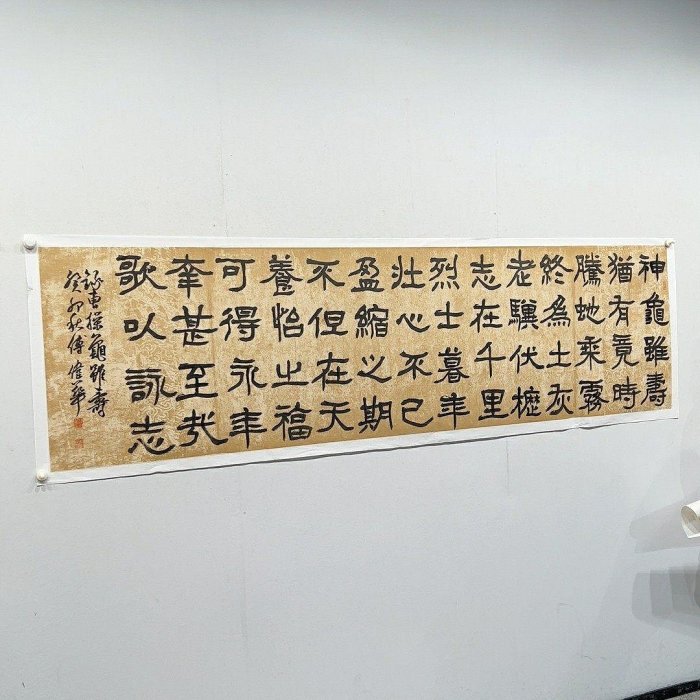 神龜雖壽
猶有竟時
騰虵乘霧
終為土灰
老驥伏櫪
志在千里
烈士暮年
壯心不已
盈縮之期
不但在天
養怡之福
可得永年
幸甚至哉
歌以詠志
錄曹操龜雖壽
癸卯秋傅華